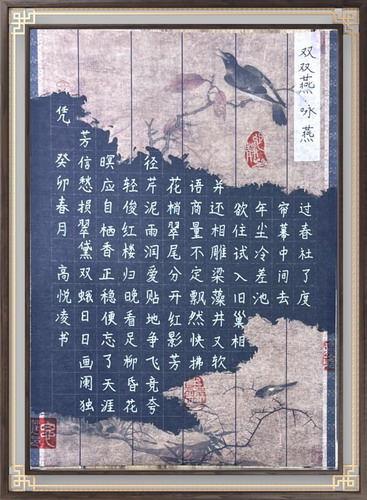 双双燕·咏燕
过春社了度
帘幕中间去
年尘冷差池
欲住试入旧巢相
并还相雕梁藻井又软
语商量不定飘然快拂
花梢翠尾分开红影芳
径芹泥雨润爱贴地争飞竞夸
轻俊红楼归晚看足柳昏花
暝应自栖香正稳便忘了天涯
芳信愁损翠黛双蛾日日画阑独
凭
癸卯春月 高悦凌书